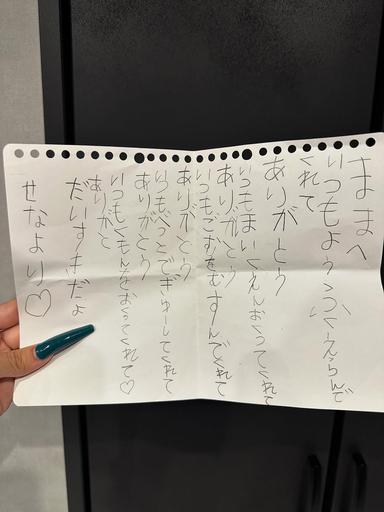 ままへ
いつもようふくえらんで
くれて
ありがとう
いつもまいくえんおくってくれて
ありがとう
いつもごむをむすんでくれて
ありがとう
いつもべっとでぎゅーしてくれて
ありがとう
いつもくもんをおくってくれて♡
ありがと
だいすきだよ
せなより♡